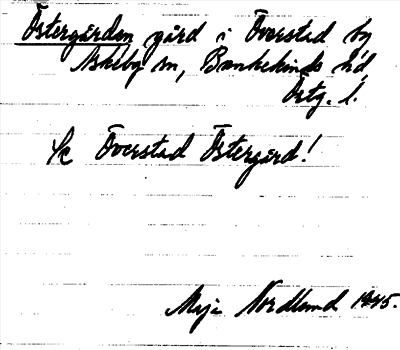 Östergården gård i Överstad by
Askeby sn, Bankekinds hd,
Östg. l.
Se Överstad Östergård!
Maja Nordlund 1945.